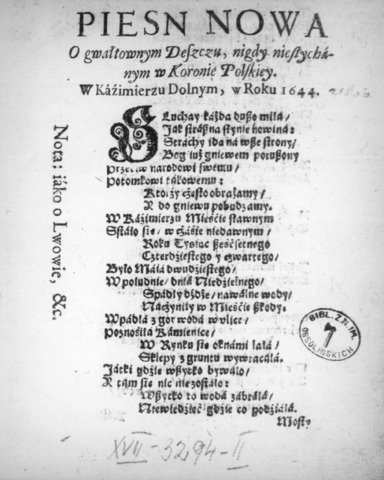 PIESN NOWA
O gwałtownym Deszczu, nigdy niesłychá-
nym w Koronie Polskiey.
W Káźimierzu Dolnym, w Roku 1644.
SLuchay káżda duszo miła/
Jak strászna słynie nowina:
Strachy idą ná wsze strony/
Bog iuż gniewem poruszony
Przećiw narodowi swemu/
Potomkowi tákowemu:
Ktorzy często obrażamy/
A do gniewu pobudzamy.
W Káźimierzu Mieśćie sławnym
Stáło sie/ w czáśie niedawnym/
Roku Tyśiąc sześćsetnego
Czterdziestego y czwartego/
Było Máia dwudziestego/
W południe/ dniá Niedzielnego/
Spádły dżdże/ nawálne wody/
Náczyniły w Mieśćie szkody.
Wpádłá z gor wodá w vlice/
Poznośiłá Kámienice/
W Rynku sie oknámi lałá/
Sklepy z gruntu wywracáłá.
Játki gdzie wszytko bywáło/
A tám sie nic nie zostáło:
Wszytko to wodá zábráłá/
Niewiedzieć gdzie co podźiałá.
Mosty
Nota: iáko o Lwowie, &c.
BIBL. Z. N. IM.
OSSOLIŃSKICH
XVII-3294-II